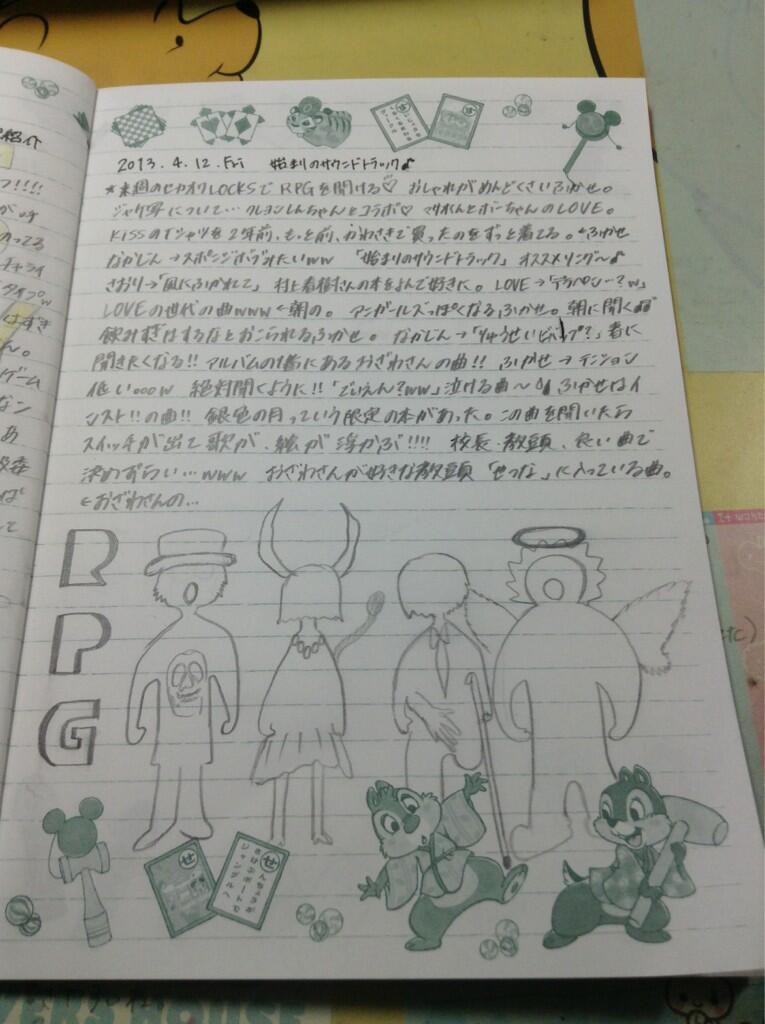 2013.4.12.Fri 始まりのサウンドトラック♪
★来週のセカオワLOCKSで RPGを聞ける♡ おしゃれがめんどくさいふかせ。
ジャケ写について… クレヨンしんちゃんとコラボ♡ マサオくんとボーちゃんのLOVE。
KissのTシャツを2年前、もっと前、かわさきで買ったのをずっと着てる。←ふかせ
なかじん→スポンジボブみたいww 「始まりのサウンドトラック」オススメリング〜♪
さおり→「風にふかれて」村上春樹さんの本をよんで好きに。LOVE→
LOVEの世代の曲www←朝の。アンガールズっぽくなるふかせ。朝に聞く
飲みすぎはするなとおこられるふかせ。なかじん→ 春に
聞きたくなる!! アルバムの1番にあるおざわさんの曲!! ふかせ→テンション
低い。。。w 絶対聞くように!! 泣ける曲〜 ふかせはイ
ンスト!!の曲!! 銀色の月っていう限定の本があった。この曲を聞いたら
スイッチが出て歌が、絵が浮かぶ!!!! 校長・教頭、良い曲で
決めずらい…www おざわさんが好きな教頭「せつな」に入っている曲。
←おざわさんの…
RPG
紹介
!!!!
ってる
チャライ
タイプw
はすき
ん。
ゲーム
なン
あ
ば
て
せ
せ
せ
んせうが
あげボートで
ジャングルへ